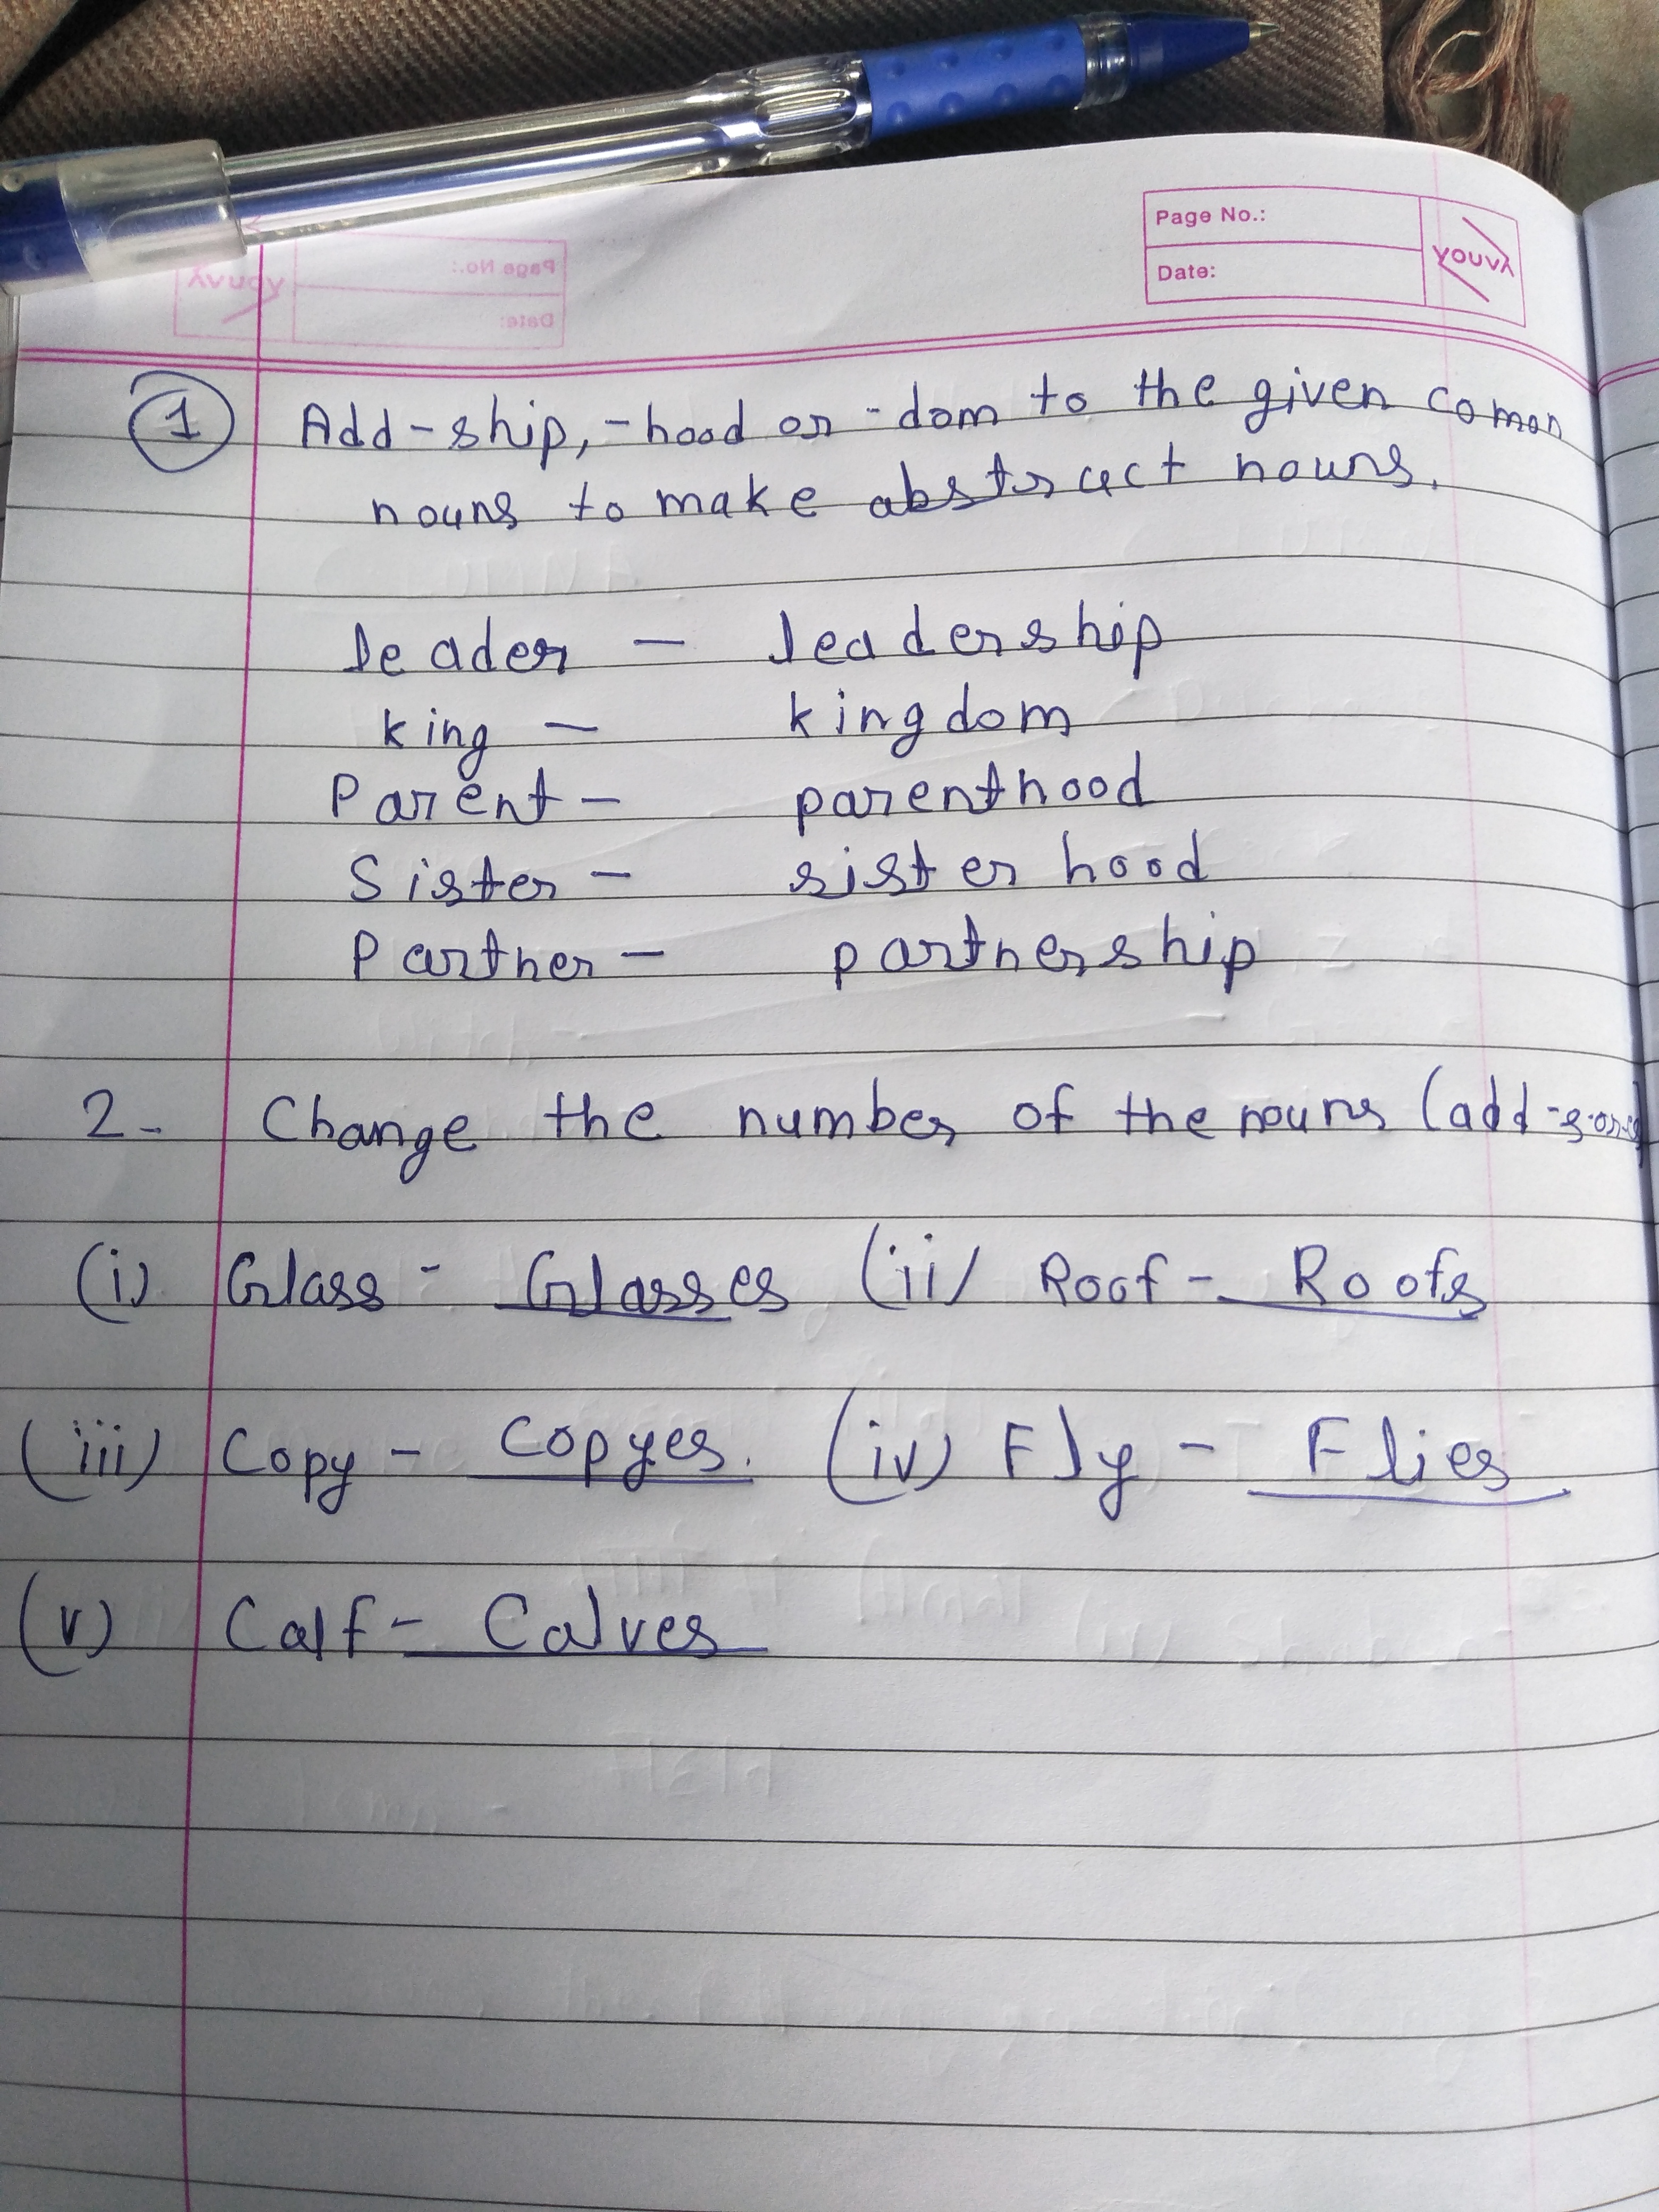 Page No.:
Date:
youva
1 Add-ship, -hood or -dom to the given comon
nouns to make abstract nouns.
leader - leadership
king - kingdom
Parent - parenthood
Sister - sisterhood
Partner - partnership
2- Change the number of the nouns (add -s or -es)
(i) Glass - Glasses (ii) Roof - Roofs
(iii) Copy - Copyes. (iv) Fly - Flies
(v) Calf - Calves